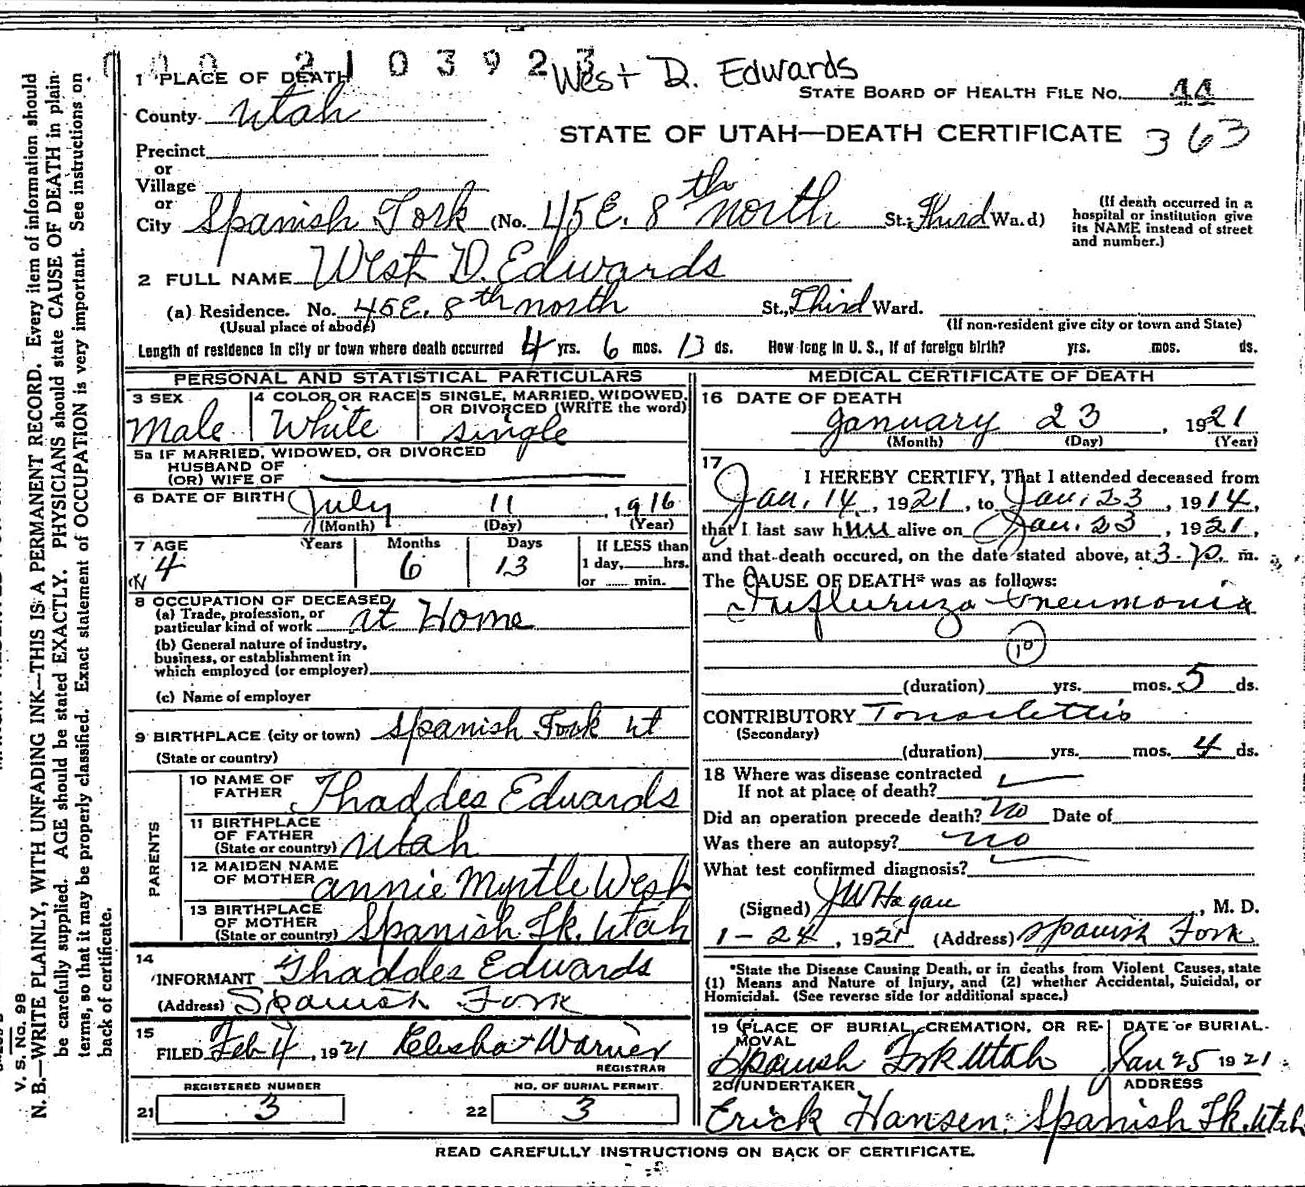 2103923
West D. Edwards
STATE BOARD OF HEALTH FILE NO. 44
STATE OF UTAH—DEATH CERTIFICATE 363
1 PLACE OF DEATH
County Utah
Precinct
or
Village
or
City Spanish Fork (No. 45 E. 8th north St.; Third Ward)
(If death occurred in a hospital or institution give its NAME instead of street and number.)
2 FULL NAME West D. Edwards
(a) Residence. No. 45 E. 8th north St., Third Ward.
(Usual place of abode) (If non-resident give city or town and State)
Length of residence in city or town where death occurred 4 yrs. 6 mos. 13 ds. How long in U. S., if of foreign birth? yrs. mos. ds.
PERSONAL AND STATISTICAL PARTICULARS
3 SEX Male
4 COLOR OR RACE White
5 SINGLE, MARRIED, WIDOWED, OR DIVORCED (WRITE the word) single
5a IF MARRIED, WIDOWED, OR DIVORCED
HUSBAND OF
(OR) WIFE OF
6 DATE OF BIRTH July 11, 1916
(Month) (Day) (Year)
7 AGE Years Months Days If LESS than
4 6 13 1 day, hrs.
or min.
8 OCCUPATION OF DECEASED
(a) Trade, profession, or
particular kind of work at Home
(b) General nature of industry,
business, or establishment in
which employed (or employer)
(c) Name of employer
9 BIRTHPLACE (city or town) Spanish Fork Ut
(State or country)
PARENTS
10 NAME OF FATHER Thaddes Edwards
11 BIRTHPLACE OF FATHER (State or country) Utah
12 MAIDEN NAME OF MOTHER annie Myrtle West
13 BIRTHPLACE OF MOTHER (State or country) Spanish Fk. Utah
14
INFORMANT Thaddes Edwards
(Address) Spanish Fork
15
FILED Feb 4, 1921 Warner
REGISTRAR
REGISTERED NUMBER NO. OF BURIAL PERMIT.
21 3 22 3
MEDICAL CERTIFICATE OF DEATH
16 DATE OF DEATH
January 23, 1921
(Month) (Day) (Year)
17
I HEREBY CERTIFY, That I attended deceased from
Jan. 14, 1921, to Jan. 23, 1914,
that I last saw him alive on Jan. 23, 1921,
and that death occured, on the date stated above, at 3- P. m.
The CAUSE OF DEATH* was as follows:
Influenza Pneumonia
10
(duration) yrs. mos. 5 ds.
CONTRIBUTORY Tonselettis
(Secondary)
(duration) yrs. mos. 4 ds.
18 Where was disease contracted
If not at place of death?
Did an operation precede death? No Date of
Was there an autopsy? no
What test confirmed diagnosis?
(Signed) J W Hagan, M. D.
1-24, 1921 (Address) Spanish Fork
*State the Disease Causing Death, or in deaths from Violent Causes, state
(1) Means and Nature of Injury, and (2) whether Accidental, Suicidal, or
Homicidal. (See reverse side for additional space.)
19 PLACE OF BURIAL, CREMATION, OR REMOVAL DATE OF BURIAL
Spanish Fork Utah Jan 25 1921
20 UNDERTAKER ADDRESS
Erick Hansen. Spanish Fk. Utah
READ CAREFULLY INSTRUCTIONS ON BACK OF CERTIFICATE.
V. S. No. 98
N. B.—WRITE PLAINLY, WITH UNFADING INK—THIS IS A PERMANENT RECORD. Every item of information should
be carefully supplied. AGE should be stated EXACTLY. PHYSICIANS should state CAUSE OF DEATH in plain
terms, so that it may be properly classified. Exact statement of OCCUPATION is very important. See instructions on
back of certificate.